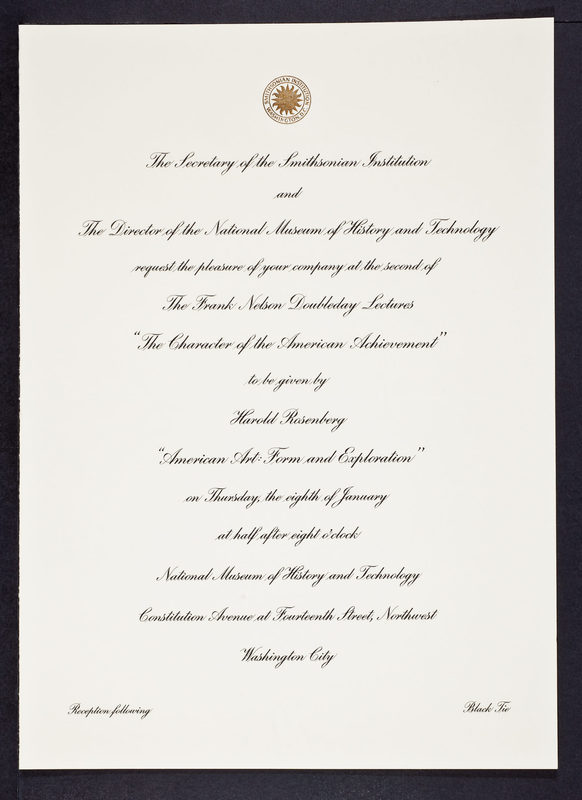 SMITHSONIAN INSTITUTION
WASHINGTON D.C.
The Secretary of the Smithsonian Institution
and
The Director of the National Museum of History and Technology
request the pleasure of your company at the second of
The Frank Nelson Doubleday Lectures
“The Character of the American Achievement”
to be given by
Harold Rosenberg
“American Art: Form and Exploration”
on Thursday, the eighth of January
at half after eight o'clock
National Museum of History and Technology
Constitution Avenue at Fourteenth Street, Northwest
Washington City
Reception following
Black Tie